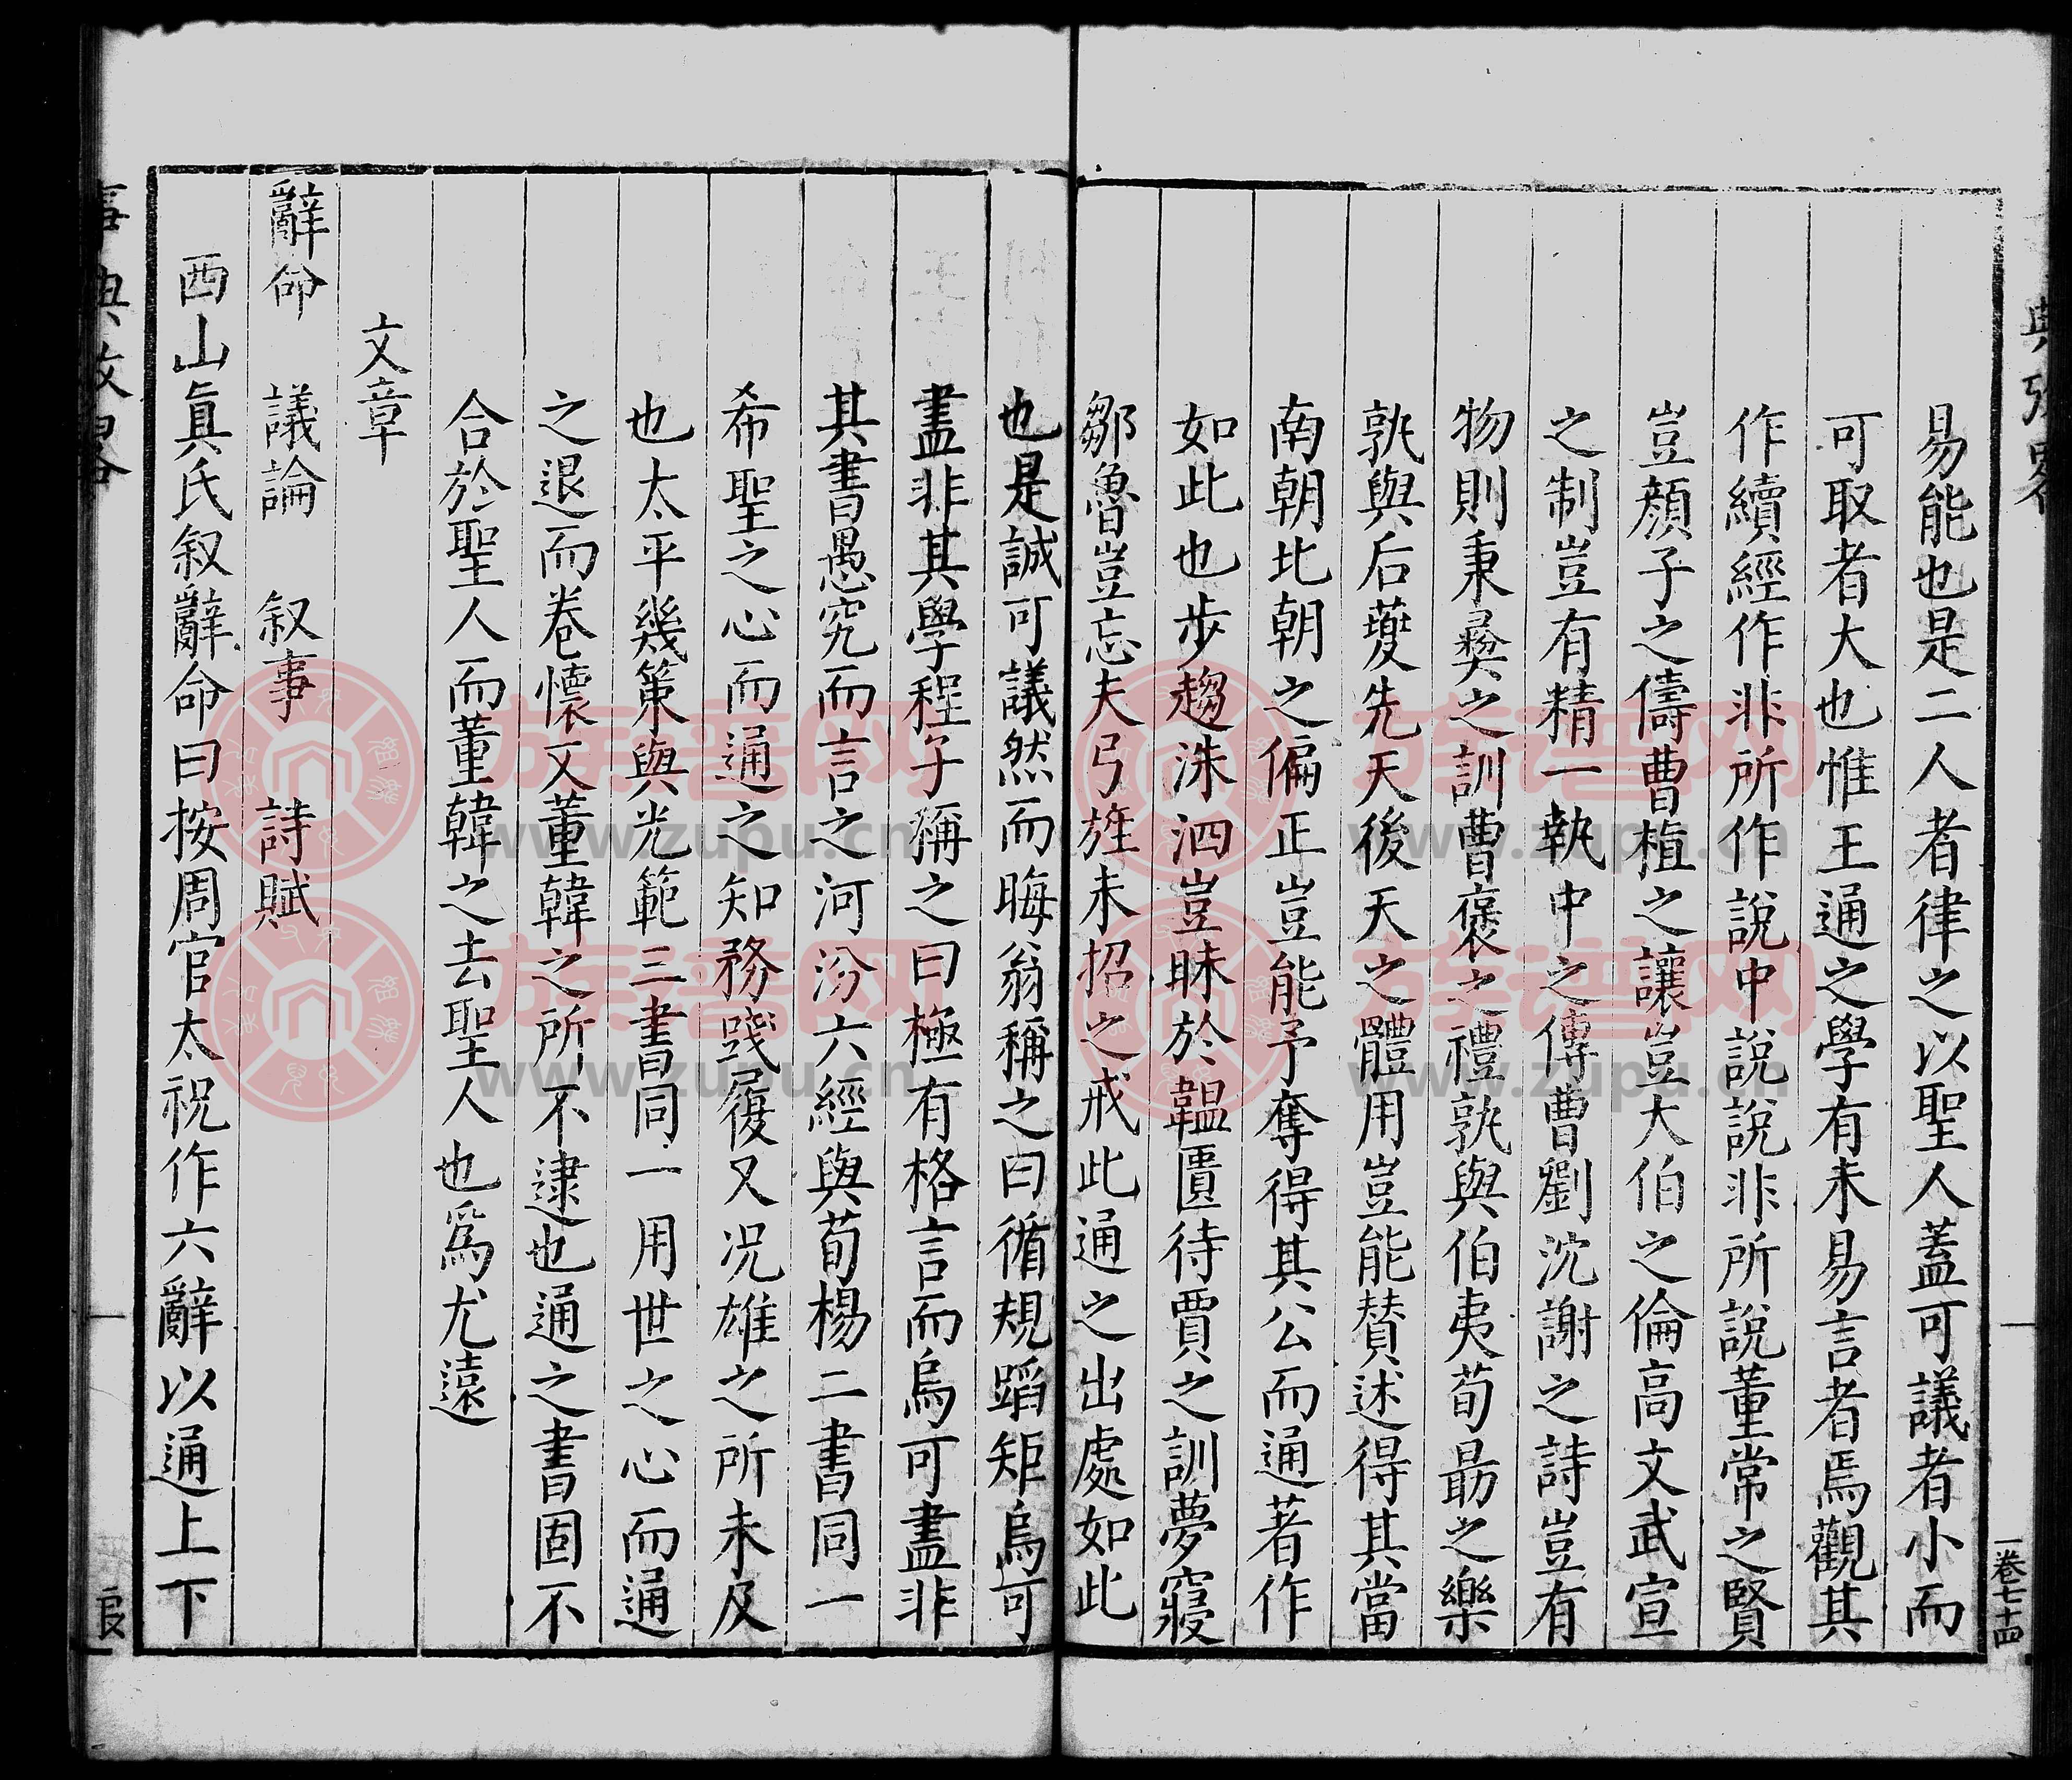 易能也是二人者律之以聖人蓋可議者小而
可取者大也惟王通之學有未易言者焉觀其
作續經作非所作說中說說非所說董常之賢
豈顏子之儔曹植之讓豈大伯之倫高文武宣
之制豈有精一執中之傳曹劉沈謝之詩豈有
物則秉彝之訓曹褒之禮孰與伯夷荀勗之樂
孰與后夔先天後天之體用豈能賛述得其當
南朝北朝之偏正豈能予奪得其公而通著作
如此也步趨洙泗豈昧於韞匵待賈之訓夢寢
鄒魯豈忘夫弓旌未招之戒此通之出處如此
也是誠可議然而晦翁稱之曰循規蹈矩烏可
盡非其學程子稱之曰極有格言而烏可盡非
其書愚究而言之河汾六經與荀楊二書同一
希聖之心而通之知務踐履又况雄之所未及
也太平幾策與光範三書同一用世之心而通
之退而卷懷又董韓之所不逮也通之書固不
合於聖人而董韓之去聖人也爲尤遠
文章
辭命 議論 叙事 詩賦
西山眞氏叙辭命曰按周官太祝作六辭以通上下
卷七十四
族譜网
www.zupu.cn
族譜网
www.zupu.cn
族譜网
www.zupu.cn
族譜网
www.zupu.cn